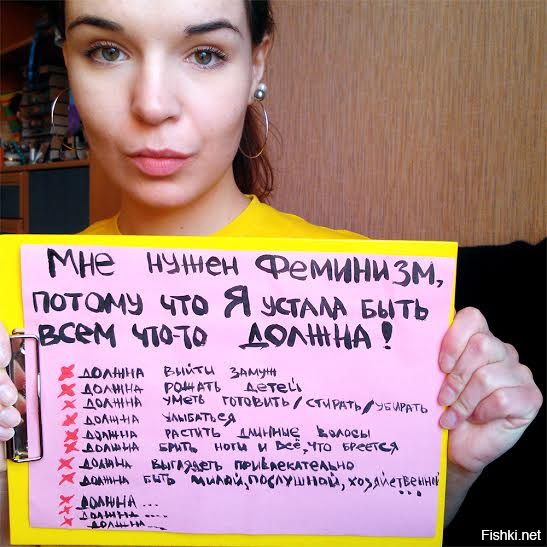 Мне нужен феминизм,
потому что Я устала быть
всем что-то должна!
× должна выйти замуж
× должна рожать детей
× должна уметь готовить/стирать/убирать
× должна улыбаться
× должна растить длинные волосы
× должна брить ноги и всё, что бреется
× должна выглядеть привлекательно
× должна быть милой, послушной, хозяйственной
...
× должна ...
× должна ...
× должна ...
Fishki.net